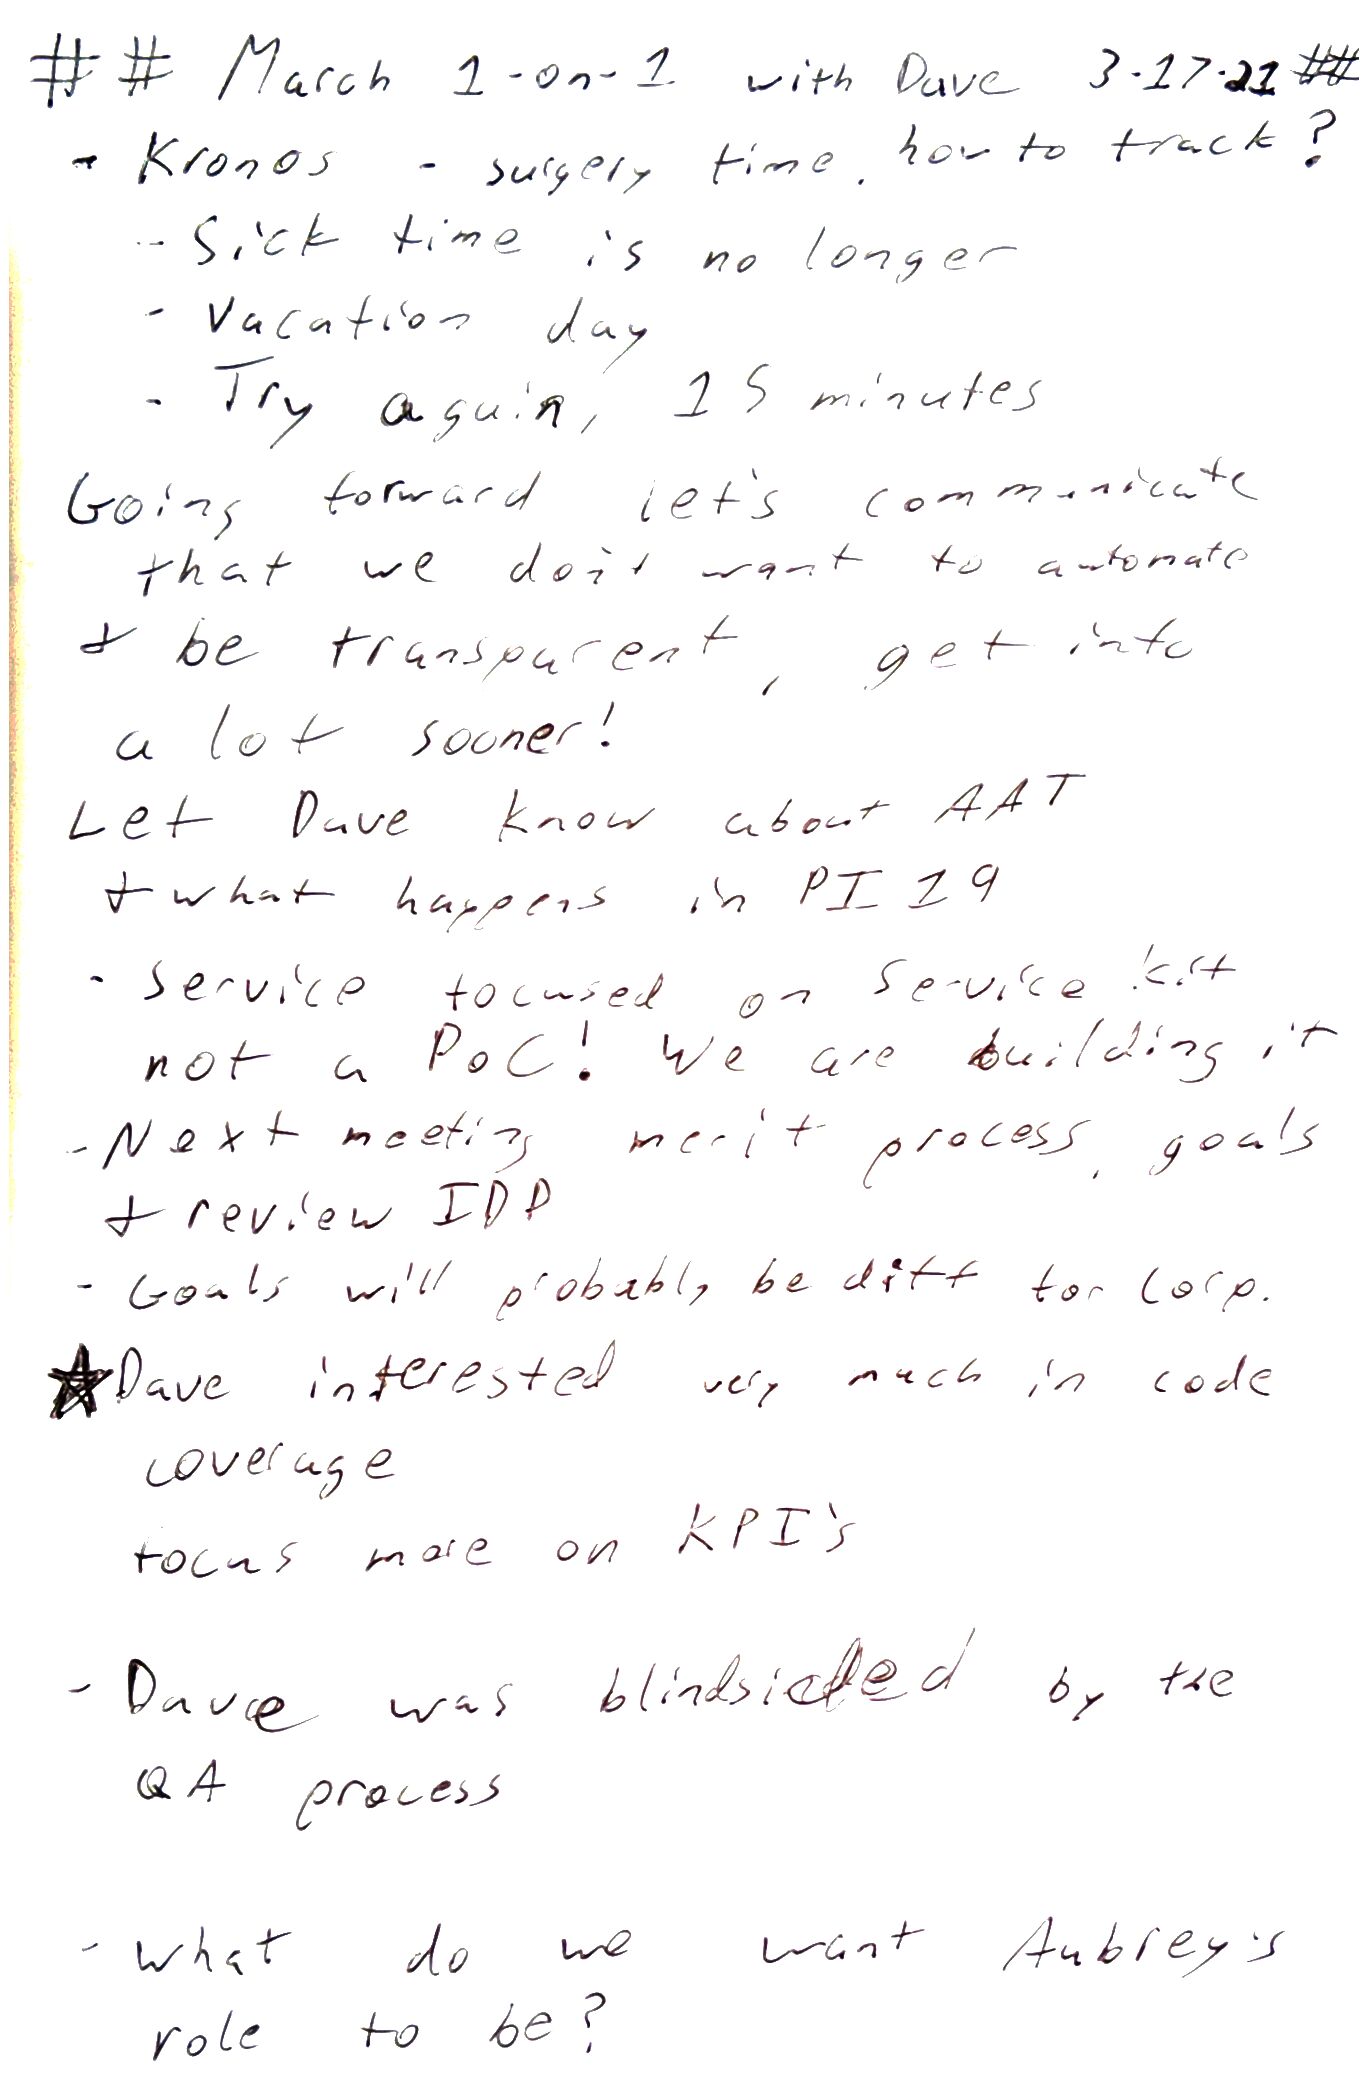 ## March 1-on-1 with Dave 3-17-21 ##
- Kronos - surgery time, how to track?
- Sick time is no longer
- Vacation day
- Try again, 15 minutes
Going forward let's communicate
that we don't want to automate
+ be transparent, get into
a lot sooner!
Let Dave know about AAT
+ what happens in PI 19
- Service focused on Service kit
not a PoC! We are building it
- Next meeting merit process, goals
+ review IDP
- Goals will probably be diff for Corp.
★ Dave interested very much in code
coverage
focus more on KPI's
- Dave was blindsided by the
QA process
- What do we want Aubrey's
role to be?